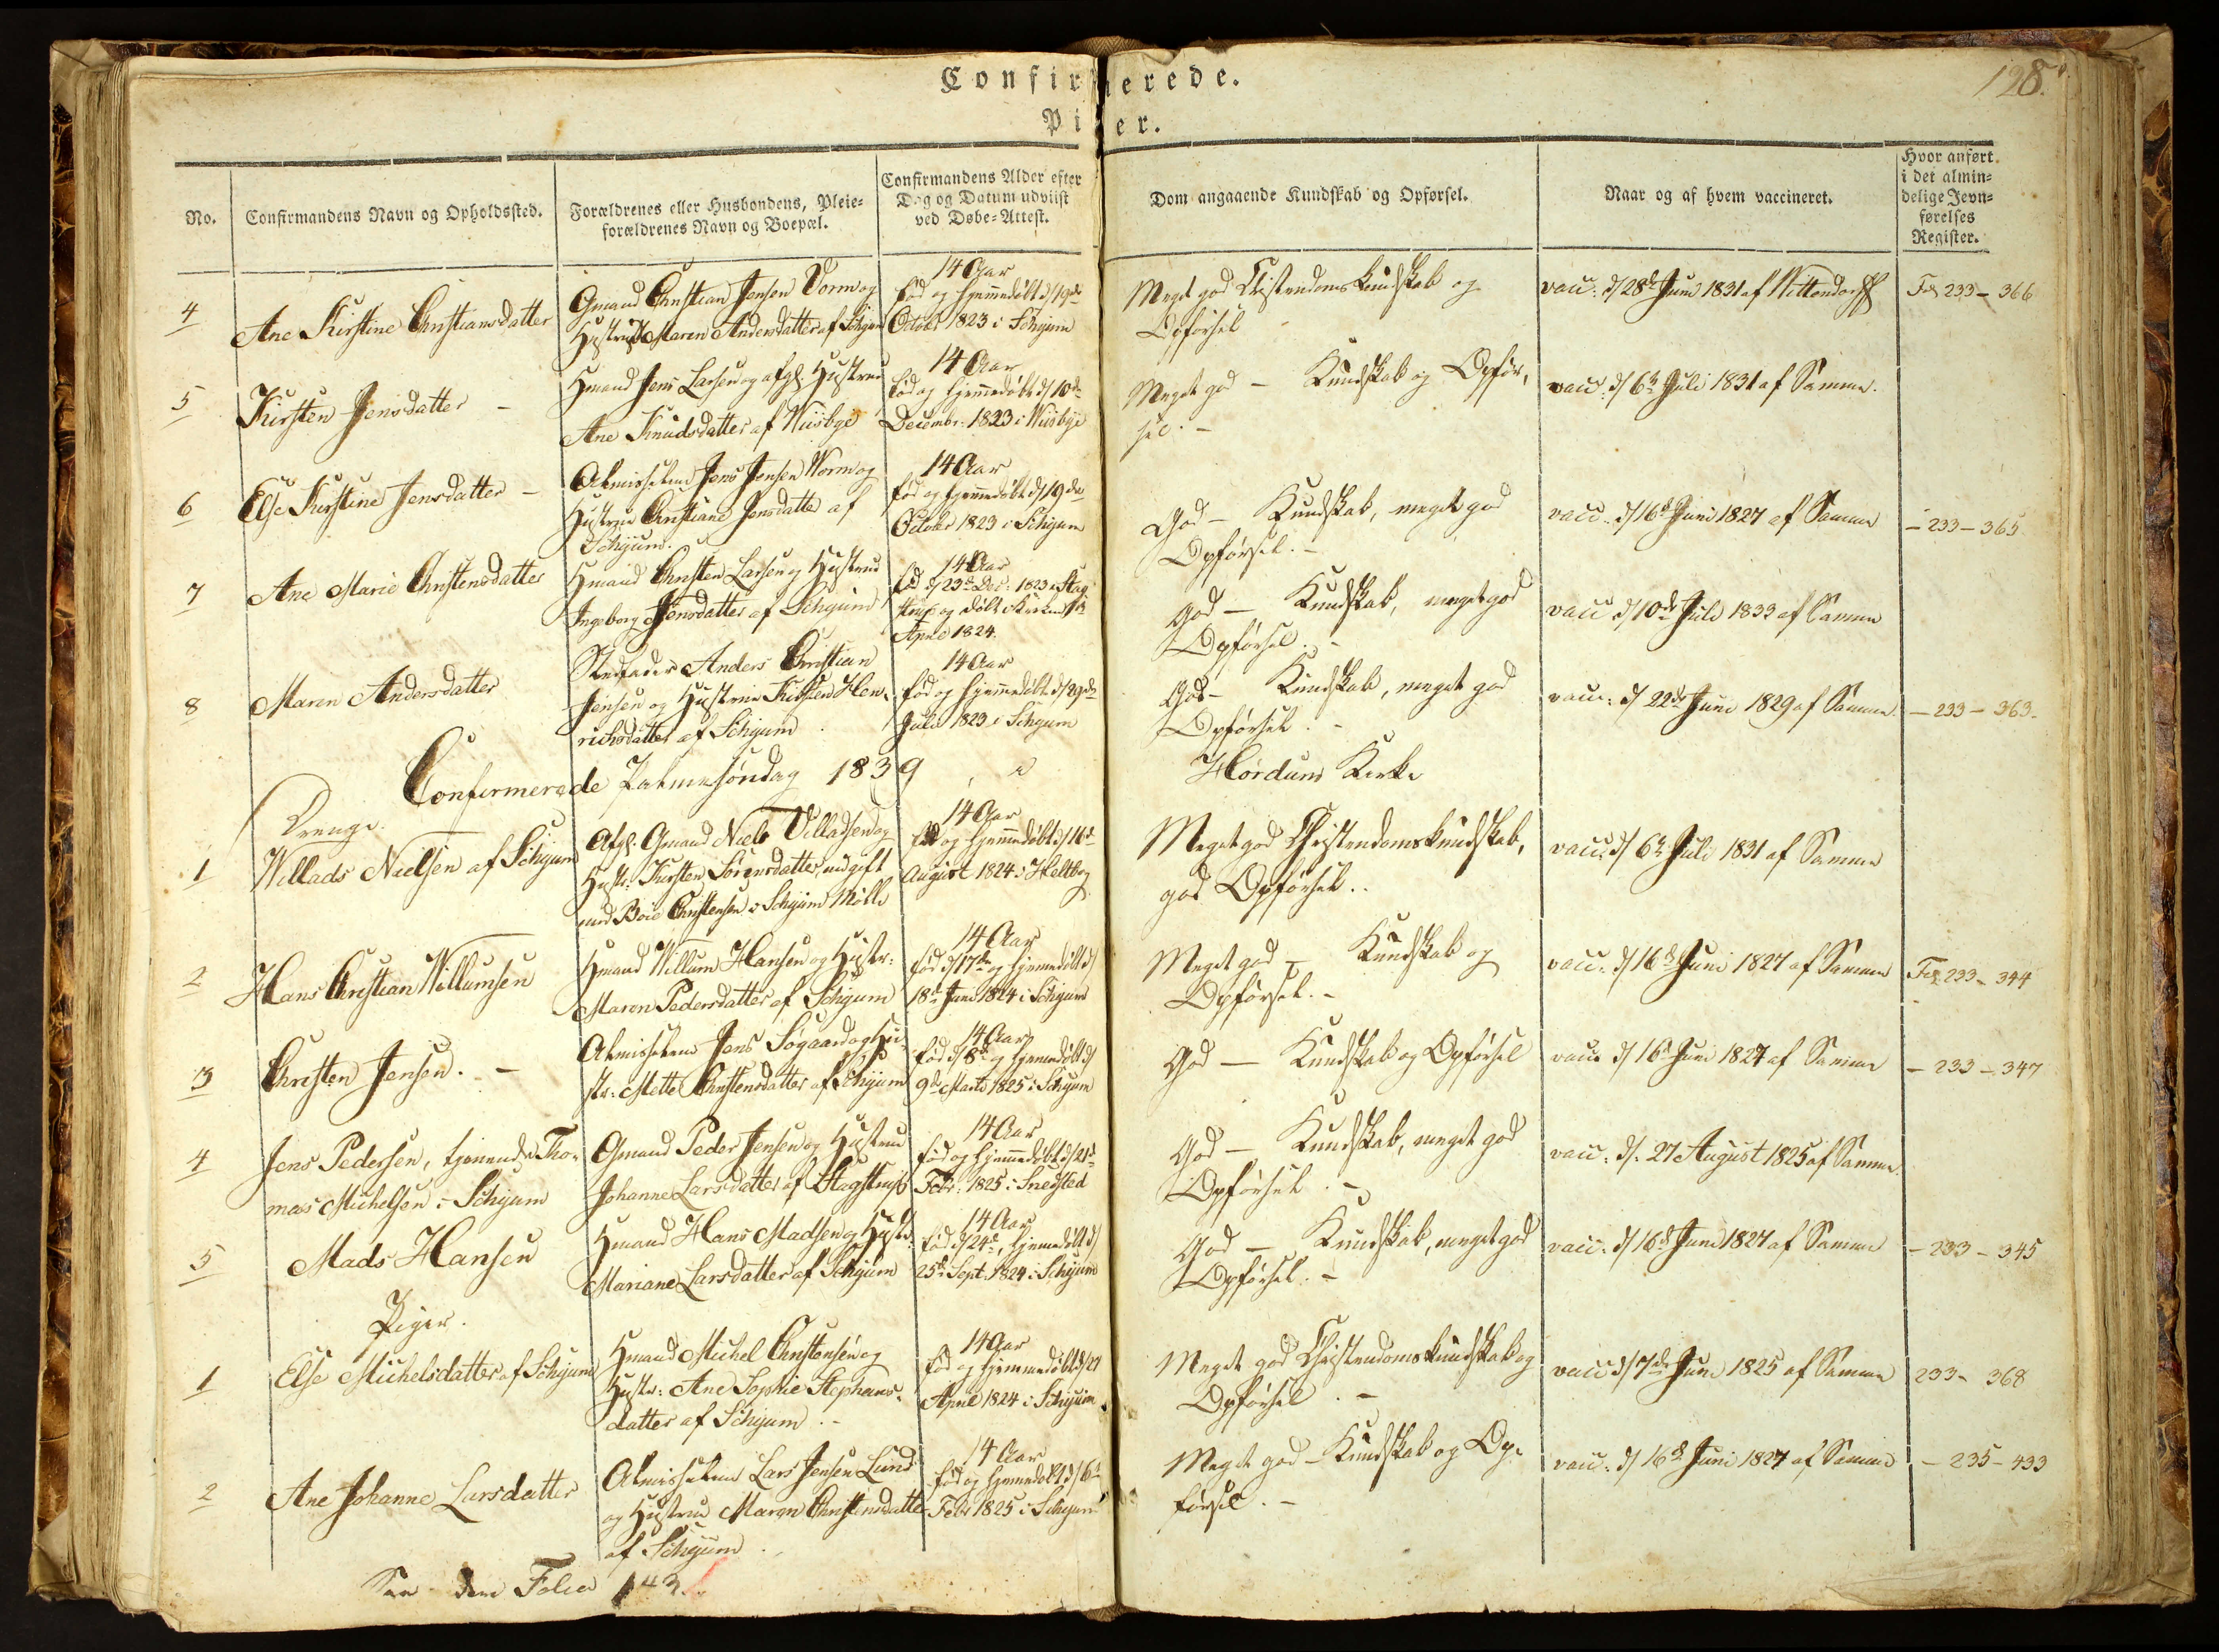 Confirmerede.
Piger.
128.
No.
Confirmandens Navn og Opholdssted.
Forældrenes eller Husbondens, Pleie-
forældrenes Navn og Boepæl.
Confirmandens Alder efter
Dag og Datum udviist
ved Døbe-Attest.
Dom angaaende Kundskab og Opførsel.
Naar og af hvem vaccineret.
Hvor anført
i det almin-
delige Jevn-
førelses
Register.
4
Ane Kirstine Christiansdatter
Gmand Christian Jensen Vorm og
Hustrue Maren Andersdatter af Schyum
14 Aar
fød og hjemmedøbt d/ 19de
Octobr 1823 i Schyum
Meget god Christendoms Kundskab og
Opførsel
vacc: d/ 28de Juni 1831 af Wittendorff
Fol 233 - 366
5
Kirsten Jensdatter -
Hmand Jens Larsen og afgl. Hustrue
Ane Knudsdatter af Wiisbye
14 Aar
fød og hjemmedøbt d/ 10de
Decembr: 1823 i Wiisbye
Meget god - Kundskab og Opfør,
sel. -
vacc: d/ 6te Juli 1831 af Samme.
6
Else Kirstine Jensdatter -
Almisselem Jens Jensen Worm og
Hustrue Christiane Jensdatter af
Schyum.
14 Aar
fød og hjemmedøbt d/ 19de
Octobr 1823 i Schyum
God - Kundskab, meget god
Opførsel. -
vacc: d/ 16de Juni 1827 af Samme
- 233 - 365
7
Ane Marie Christensdatter
Hmand Christen Larsen og Hustrue
Ingeborg Jensdatter af Schyum
14 Aar
fød d/ 23de Dec: 1823 i Stag-
strup og døbt i Kirken
April 1824.
God - Kundskab, meget god
Opførsel. -
vacc d/ 10de Juli 1833 af Samme
8
Maren Andersdatter
Stedfader Anders Christian
Jensen og Hustrue Kirsten Hen-
richsdatter af Schyum
14 Aar
fød og hjemmedøbt d/ 29de
Julii 1823 i Schyum
God - Kundskab, meget god
Opførsel. -
vacc: d/ 22de Juni 1829 af Samme
- 233 - 363.
Confirmerede Palmesøndag 1839 i Hørdum Kirke
Drenge.
1
Willads Nielsen af Schyum
Afgl: Gmand Niels Villadsen og
Hustr: Kirsten Sørensdatter, nu gift
med Boie Christensen i Schyum Mølle
14 Aar
fød og hjemmedøbt d/ 16de
August 1824 i Heltborg
Meget god Christendomskundskab,
god Opførsel..
vacc: d/ 6te Juli 1831 af Samme
2
Hans Christian Willumsen
Hmand Willum Hansen og Hustr:
Maren Pedersdatter af Schyum
14 Aar
fød d/ 17de og hjemmedøbt d/
18de Juni 1824 i Schyum
Meget god - Kundskab og
Opførsel. -
vacc: d/ 16de Juni 1827 af Samme
Fol 233 - 344
3
Christen Jensen. -
Almisselem Jens Søgaard og Hu-
str: Mette Christensdatter af Schyum
14 Aar
fød d/ 8de og hjemmedøbt d/
9de Marts 1825 i Schyum
God - Kundskab og Opførsel
vacc d/ 16de Juni 1827 af Samme
- 233 - 347
4
Jens Pedersen, tjenende Tho-
mas Michelsen i Schyum
Gmand Peder Jensen og Hustrue
Johanne Larsdatter af Stagstrup
14 Aar
fød og hjemmedøbt d/ 21de
Febr: 1825 i Snedsted
God - Kundskab, meget god
Opførsel. -
vacc: d/. 27 August 1825 af Samme.
5
Mads Hansen
Hmand Hans Madsen og Hustr:
Mariane Larsdatter af Schyum
14 Aar
fød d/ 24de, hjemmedøbt d/
25de Sept. 1824 i Schyum
God - Kundskab, meget god
Opførsel. -
vacc: d/ 16de Juni 1827 af Samme
- 233 - 345
Piger.
1
Else Michelsdatter af Schyum
Hmand Michel Christensen og
Hustr: Ane Sophie Stephans-
datter af Schyum. -
14 Aar
fød og hjemmedøbt d/ 27
April 1824 i Schyum
Meget god Christendomskundskab og
Opførsel. -
vacc d/ 7de Juni 1825 af Samme
233 - 368
2
Ane Johanne Larsdatter
Almisselem Lars Jensen Lund
og Hustrue Maren Christensdatter
af Schyum.
14 Aar
fød og hjemmedøbt d/ 6te
Febr 1825 i Schyum
Meget god - Kundskab og Op-
førsel. -
vacc: d/ 16de Juni 1827 af Samme
- 235 - 433
Folio 143.